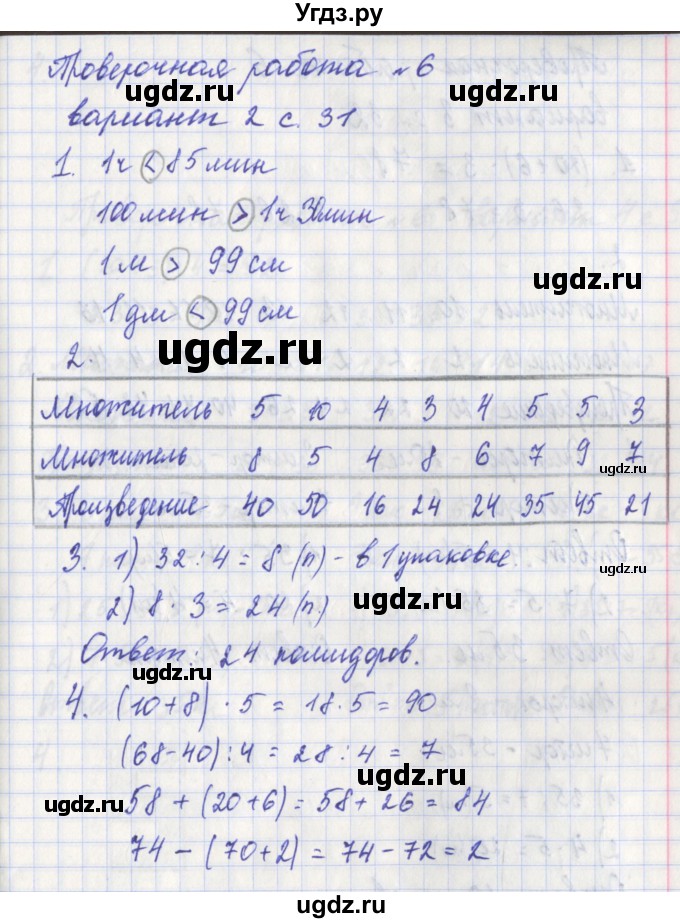 Угдз.ру
Проверочная работа №6
ugdz.ru ugdz.ru
вариант 2 с. 31
1. 1ч < 85 мин
100 мин > 1ч 30 мин
1 м > 99 см
ugdz.ru
1 дм < 99 см
ugdz.ru
2.
Множитель 5 10 4 3 4 5 5 3
Множитель 8 5 4 8 6 7 9 7
ugdz.ru
Произведение 40 50 16 24 24 35 45 21
3. 1) 32 : 4 = 8 (п) - в 1 упаковке.
ugdz.ru
2) 8 · 3 = 24 (п.)
ugdz.ru
Ответ: 24 помидоров.
ugdz.ru
4. (10+8) · 5 = 18 · 5 = 90
ugdz.ru
(68-40) : 4 = 28 : 4 = 7
58 + (20+6) = 58 + 26 = 84
ugdz.ru ugdz.ru
74 - (70+2) = 74 - 72 = 2
ugdz.ru